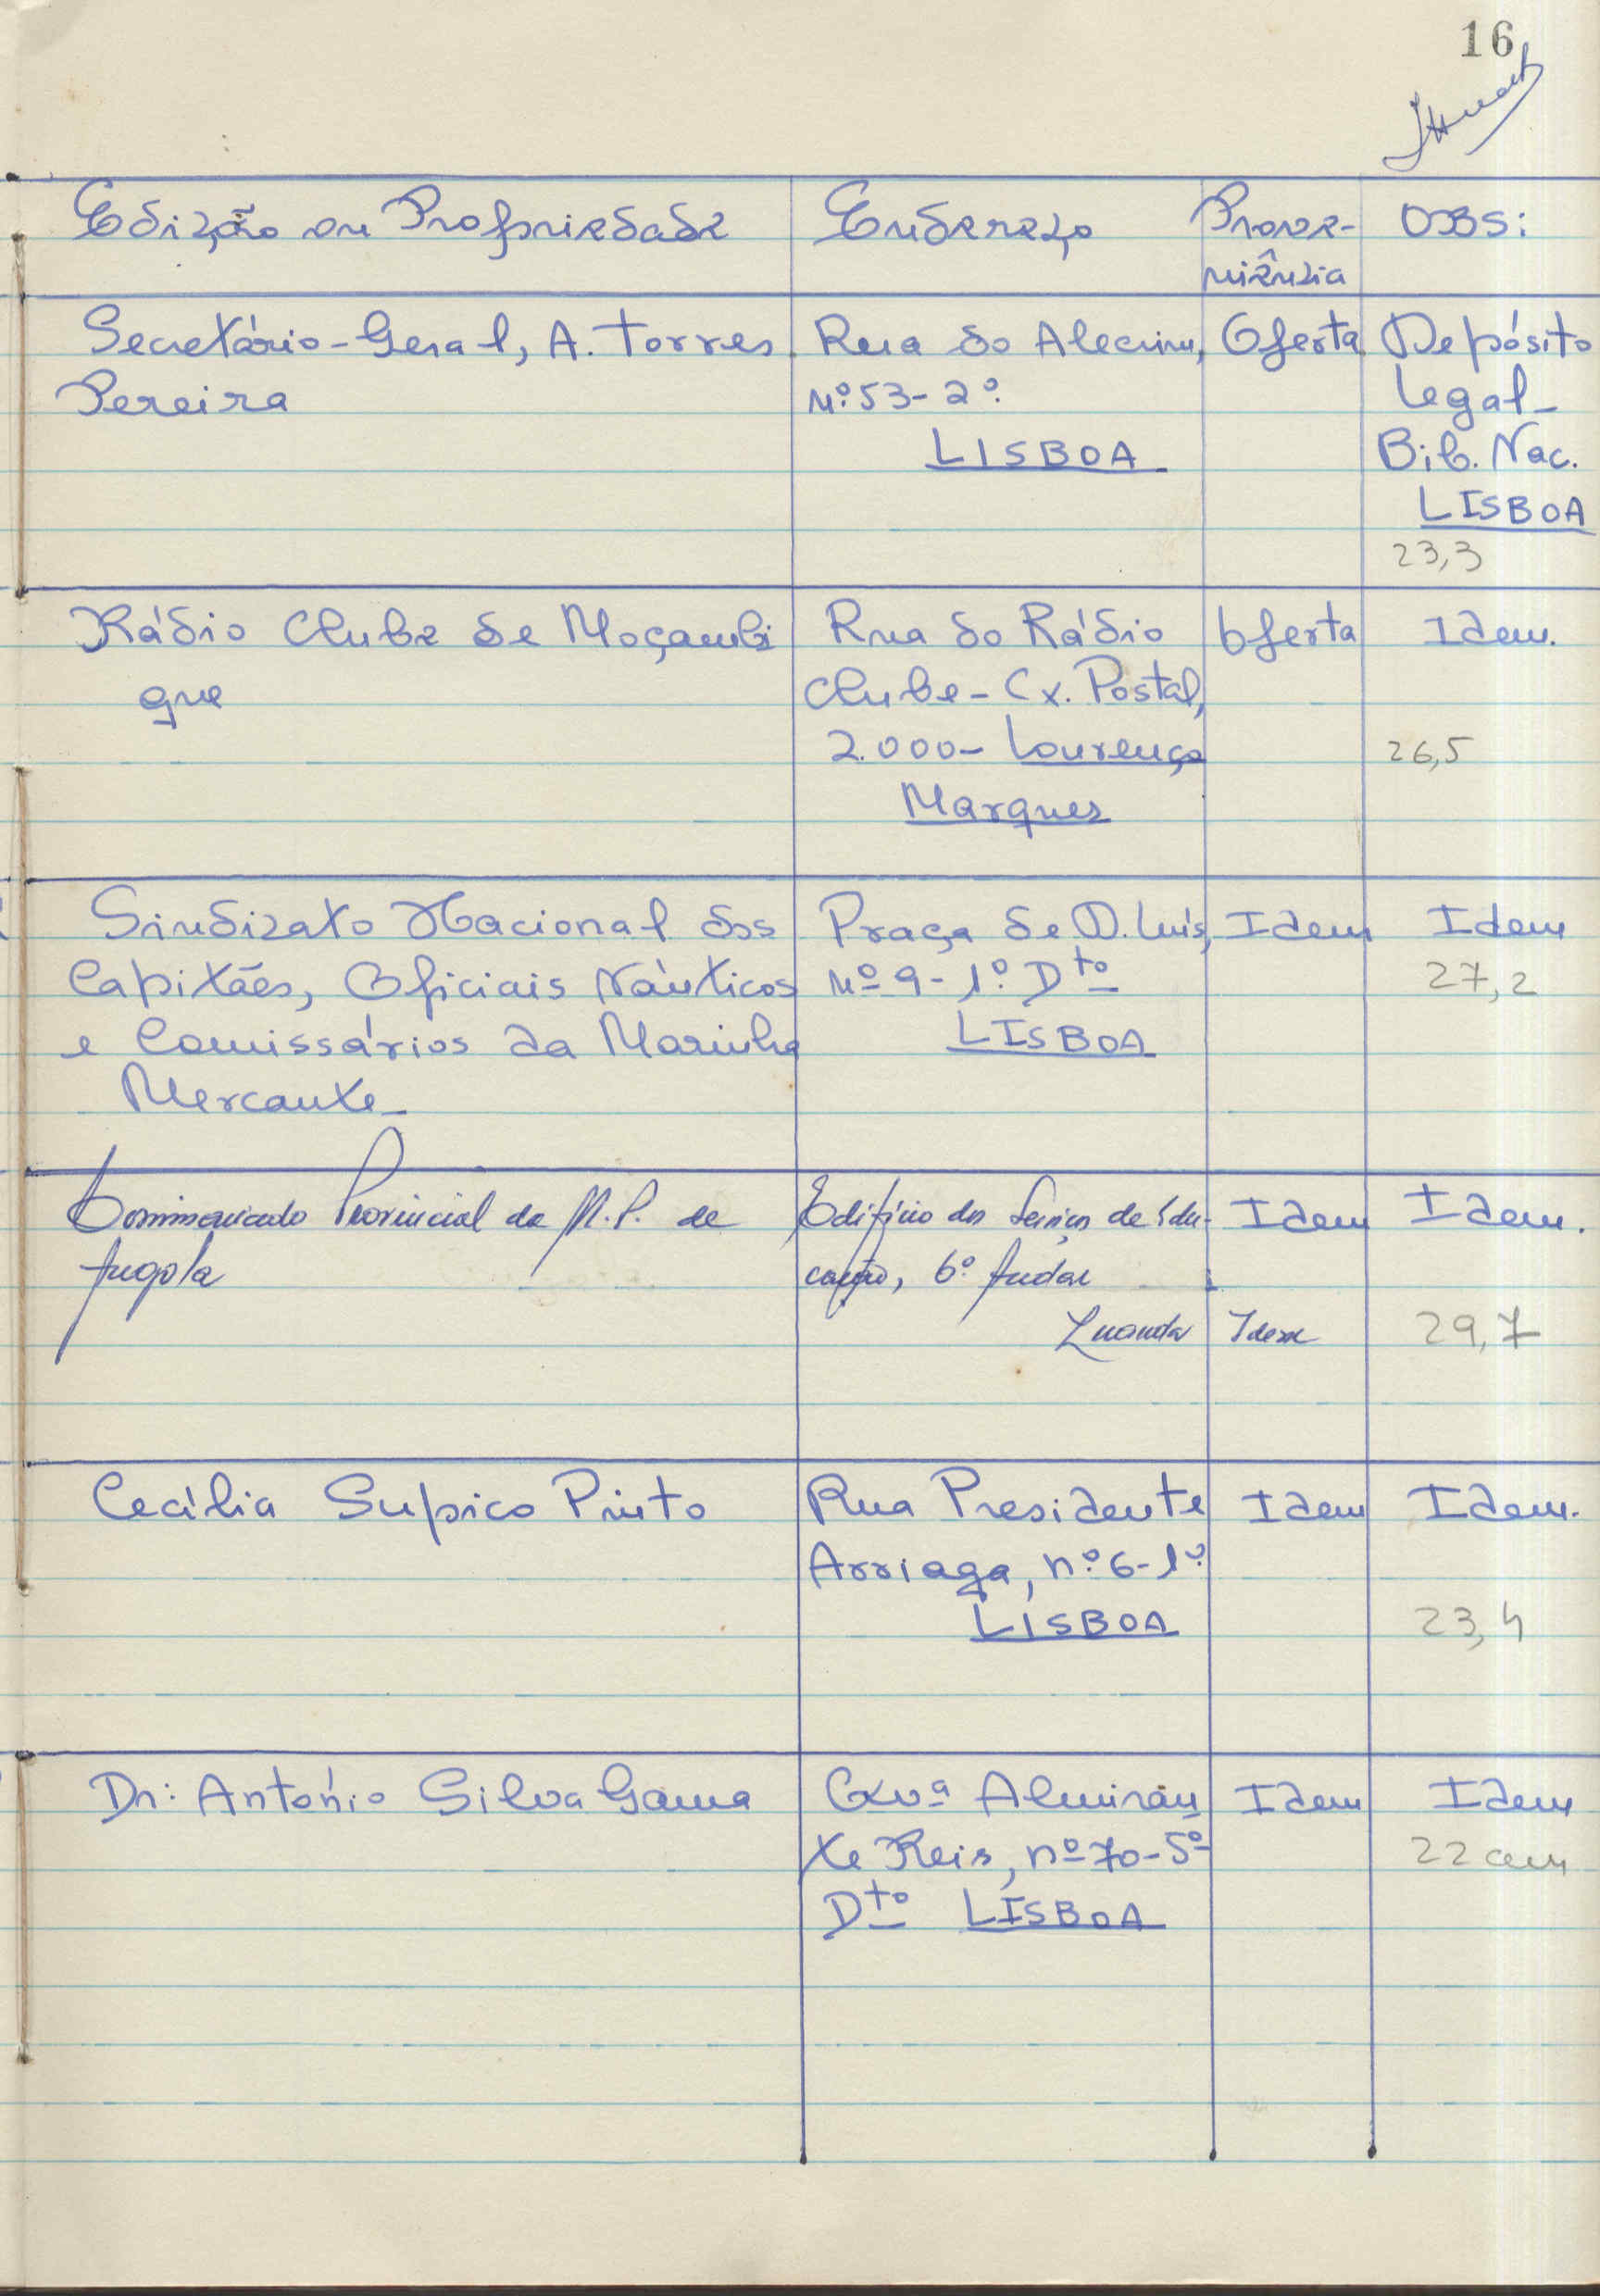 16
Edição ou Propriedade
Endereço
Prove-
niência
OBS:
Secretário-Geral, A. Torres
Pereira
Rua do Alecrim,
Nº. 53-2º.
LISBOA
Oferta
Depósito
Legal-
Bib. Nac.
LISBOA
23,3
Rádio Clube de Moçambi
que
Rua do Rádio
Clube - Cx. Postal,
2.000 - Lourenço
Marques
Oferta
Idem.
26,5
Sindicato Nacional dos
Capitães, Oficiais Náuticos
e Comissários da Marinha
Mercante-
Praça de D. Luís,
Nº 9 - 1º. Dto
LISBOA
Idem
Idem
27,2
Comissariado Provincial da M.P. de
Angola
Edifício dos Serviços de Edu-
cação, 6º. Andar
Luanda
Idem
Idem
Idem.
29,7
Cecília Supico Pinto
Rua Presidente
Arriaga, nº. 6-1º.
LISBOA
Idem
Idem.
23,4
Dr: António Silva Gama
Avª Almiran
te Reis, nº 70-5º
Dto LISBOA
Idem
Idem
22 cm